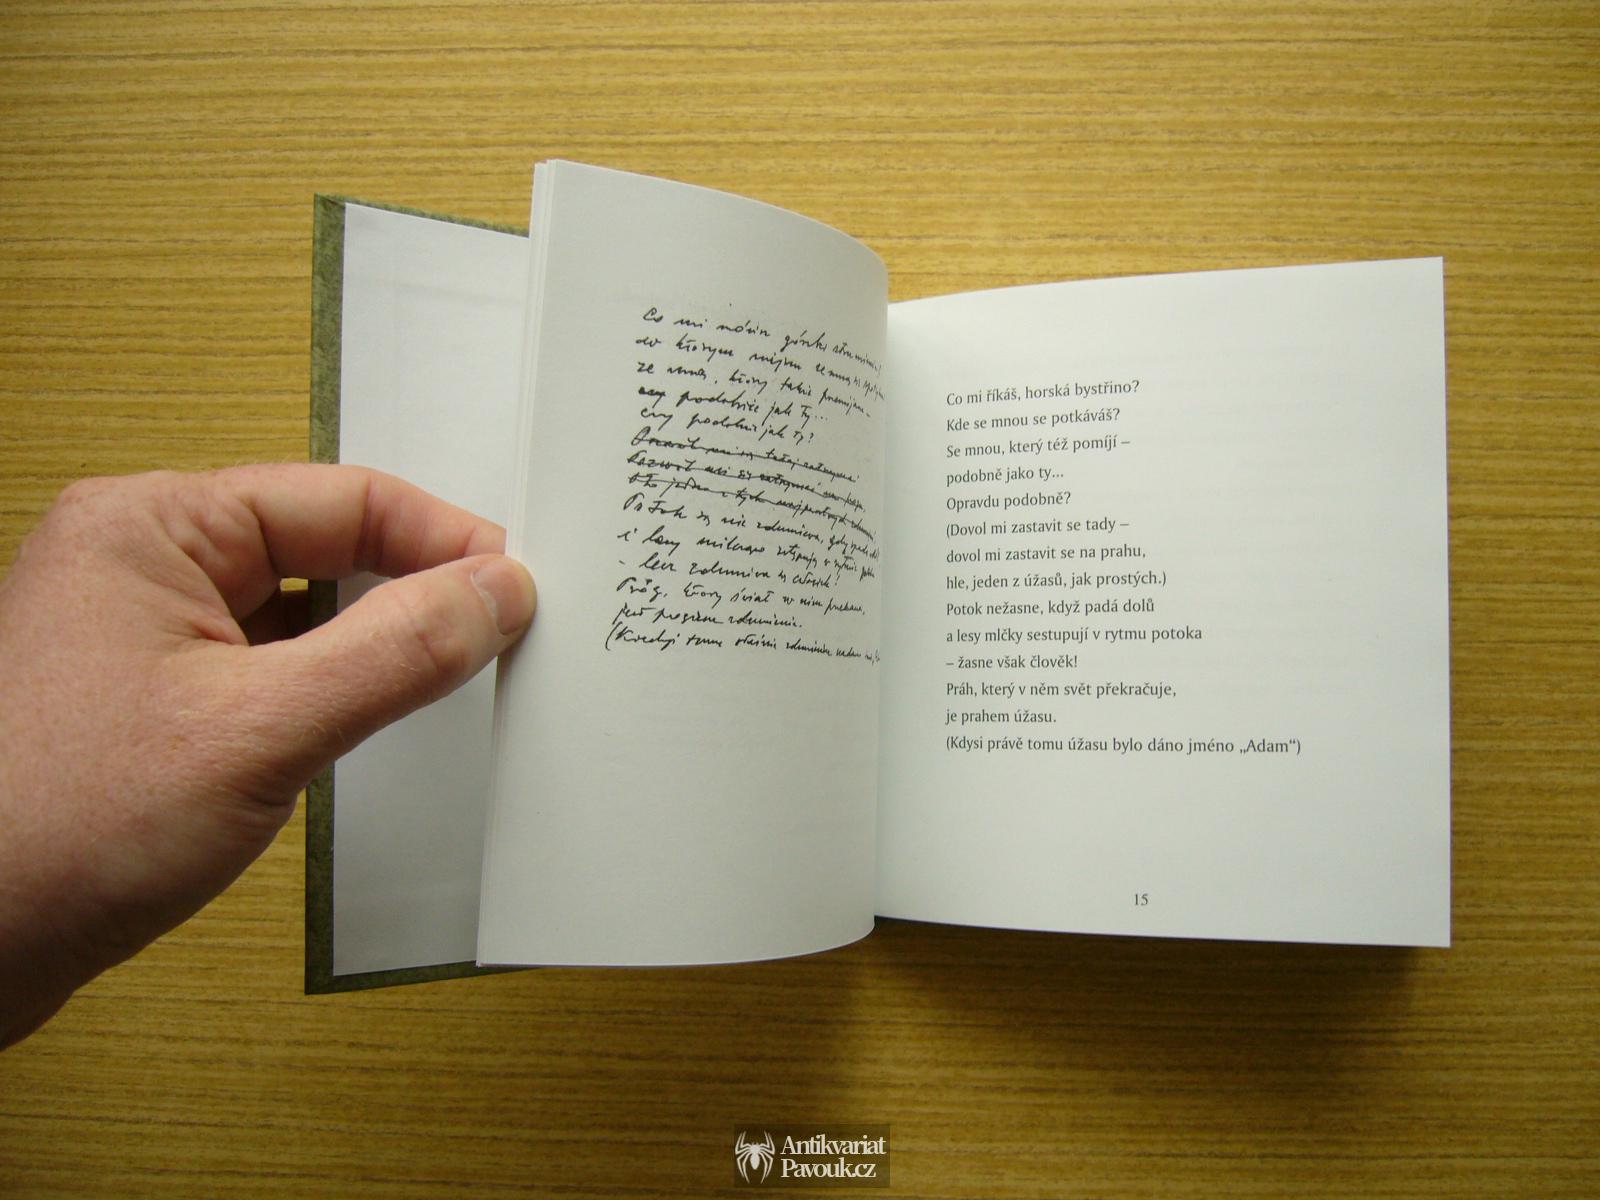 Co mi mówisz górski strumieniu?
w którym miejscu ze mną się spotykasz?
ze mną, który także przemijam –
podobnie jak ty...
czy podobnie jak ty?
Potok się nie zdumiewa, gdy spada w dół
i lasy milcząco zstępują w rytmie potoku
– lecz zdumiewa się człowiek!
Próg, który świat w nim przekracza,
jest progiem zdumienia.
(Kiedyś temu właśnie zdumieniu nadano imię
Co mi říkáš, horská bystřino?
Kde se mnou se potkáváš?
Se mnou, který též pomíjí –
podobně jako ty...
Opravdu podobně?
(Dovol mi zastavit se tady –
dovol mi zastavit se na prahu,
hle, jeden z úžasů, jak prostých.)
Potok nežasne, když padá dolů
a lesy mlčky sestupují v rytmu potoka
– žasne však člověk!
Práh, který v něm svět překračuje,
je prahem úžasu.
(Kdysi právě tomu úžasu bylo dáno jméno „Adam“)
15
Antikvariat
Pavouk.cz